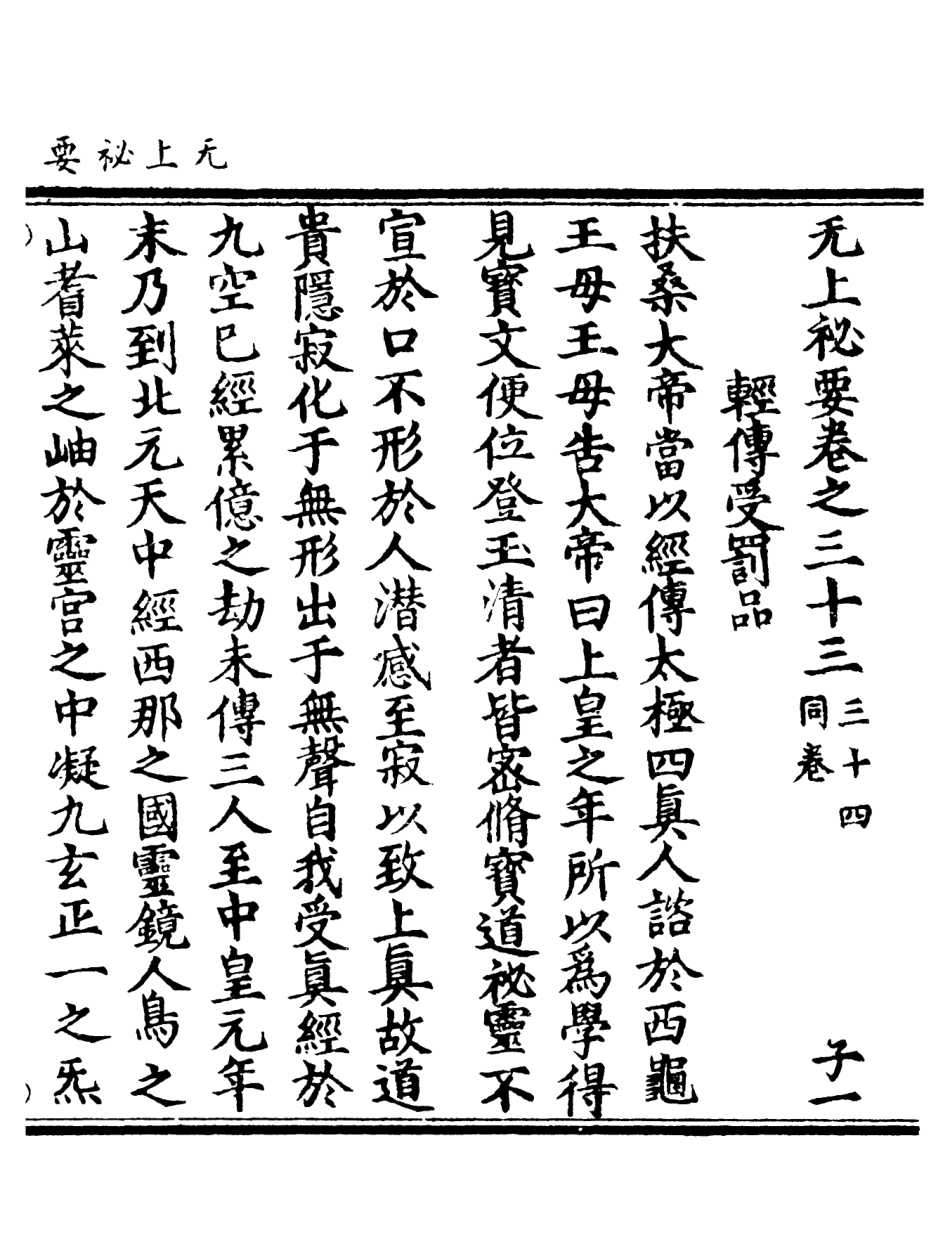 无上祕要
无上祕要卷之三十三 三十四同卷 子一
輕傳受罰品
扶桑大帝當以經傳太極四眞人諮於西龜
王母王母告大帝曰上皇之年所以爲學得
見寶文便位登玉清者皆宻脩寶道祕靈不
宣於口不形於人潜感至寂以致上眞故道
貴隱寂化于無形出于無聲自我受眞經於
九空巳經累億之劫未傳三人至中皇元年
末乃到北元天中經西那之國靈鏡人鳥之
山𦒿萊之岫於靈宮之中凝九玄正一之炁